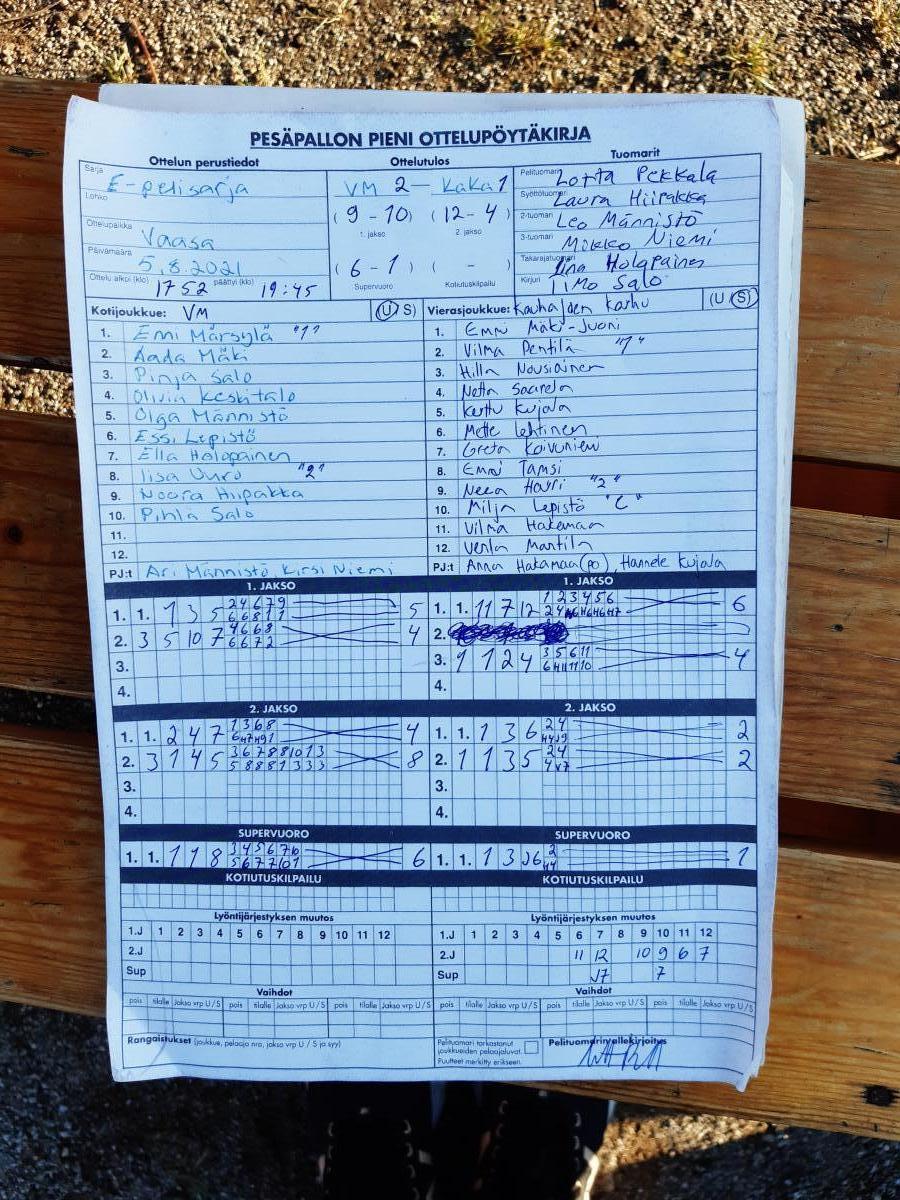 PESÄPALLON PIENI OTTELUPÖYTÄKIRJA
Ottelun perustiedot Ottelutulos Tuomarit
Sarja E-pelisarja VM 2 – KaKa 1 Pelituomari Lotta Pekkala
Lohko (9 - 10) (12 - 4) Syöttötuomari Laura Hiipakka
Ottelupaikka Vaasa 1. jakso 2. jakso 2-tuomari Leo Männistö
3-tuomari Mikko Niemi
Päivämäärä 5.8.2021 (6 - 1) ( - ) Takarajatuomari Iina Holopainen
Ottelu alkoi (klo) 17 52 päättyi (klo) 19:45 Supervuoro Kotiutuskilpailu Kirjuri Timo Salo
Kotijoukkue: VM (U S) Vierasjoukkue: Kauhajoen Karhu (U S)
1. Emi Märsylä "1" 1. Emmi Mäki-Juoni
2. Aada Mäki 2. Vilma Penttilä "1"
3. Pinja Salo 3. Hilla Nousiainen
4. Olivia Keskitalo 4. Netta Saarela
5. Olga Männistö 5. Kerttu Kujala
6. Essi Lepistö 6. Mette Lehtinen
7. Ella Holopainen 7. Greta Koivuniemi
8. Iisa Uuro "2" 8. Emmi Tamsi
9. Noora Hiipakka 9. Neea Harri "2"
10. Pihla Salo 10. Milja Lepistö "C"
11. 11. Vilma Hakamaa
12. 12. Venla Martila
PJ:t Ari Männistö, Kirsi Niemi PJ:t Anna Hakamaa (po), Hannele Kujala
1. JAKSO 1. JAKSO
1. 1. 1 3 5 2 4 6 7 9 5 1. 1. 11 7 12 1 2 3 4 5 6 6
6 6 8 1 1
2. 3 5 10 7 4 6 6 8 4 2.
6 6 7 2
3. 3. 1 1 2 4 3 5 6 11 4
4. 4.
2. JAKSO 2. JAKSO
1. 1. 2 4 7 1 3 6 8 4 1. 1. 1 3 6 2 4 2
2. 3 1 4 5 3 6 7 8 8 10 1 3 8 2. 1 1 3 5 2 4 2
5 8 8 8 1 3 3 3
3. 3.
4. 4.
SUPERVUORO SUPERVUORO
1. 1. 1 1 8 3 4 5 6 7 10 6 1. 1. 1 3 J6 2 1
5 6 7 7 10 1
KOTIUTUSKILPAILU KOTIUTUSKILPAILU
Lyöntijärjestyksen muutos Lyöntijärjestyksen muutos
1.J 1 2 3 4 5 6 7 8 9 10 11 12 1.J 1 2 3 4 5 6 7 8 9 10 11 12
2.J 2.J 11 12 10 9 6 7
Sup Sup J7 7
Vaihdot Vaihdot
pois tilalle Jakso vrp U/S pois tilalle Jakso vrp U/S pois tilalle Jakso vrp U/S pois tilalle Jakso vrp U/S pois tilalle Jakso vrp U/S pois tilalle Jakso vrp U/S
Rangaistukset (joukkue, pelaaja nro, jakso vrp U / S ja syy) Pelituomari tarkastanut joukkueiden pelaajaluvat. Pelituomarin allekirjoitus
Puutteet merkitty erikseen.